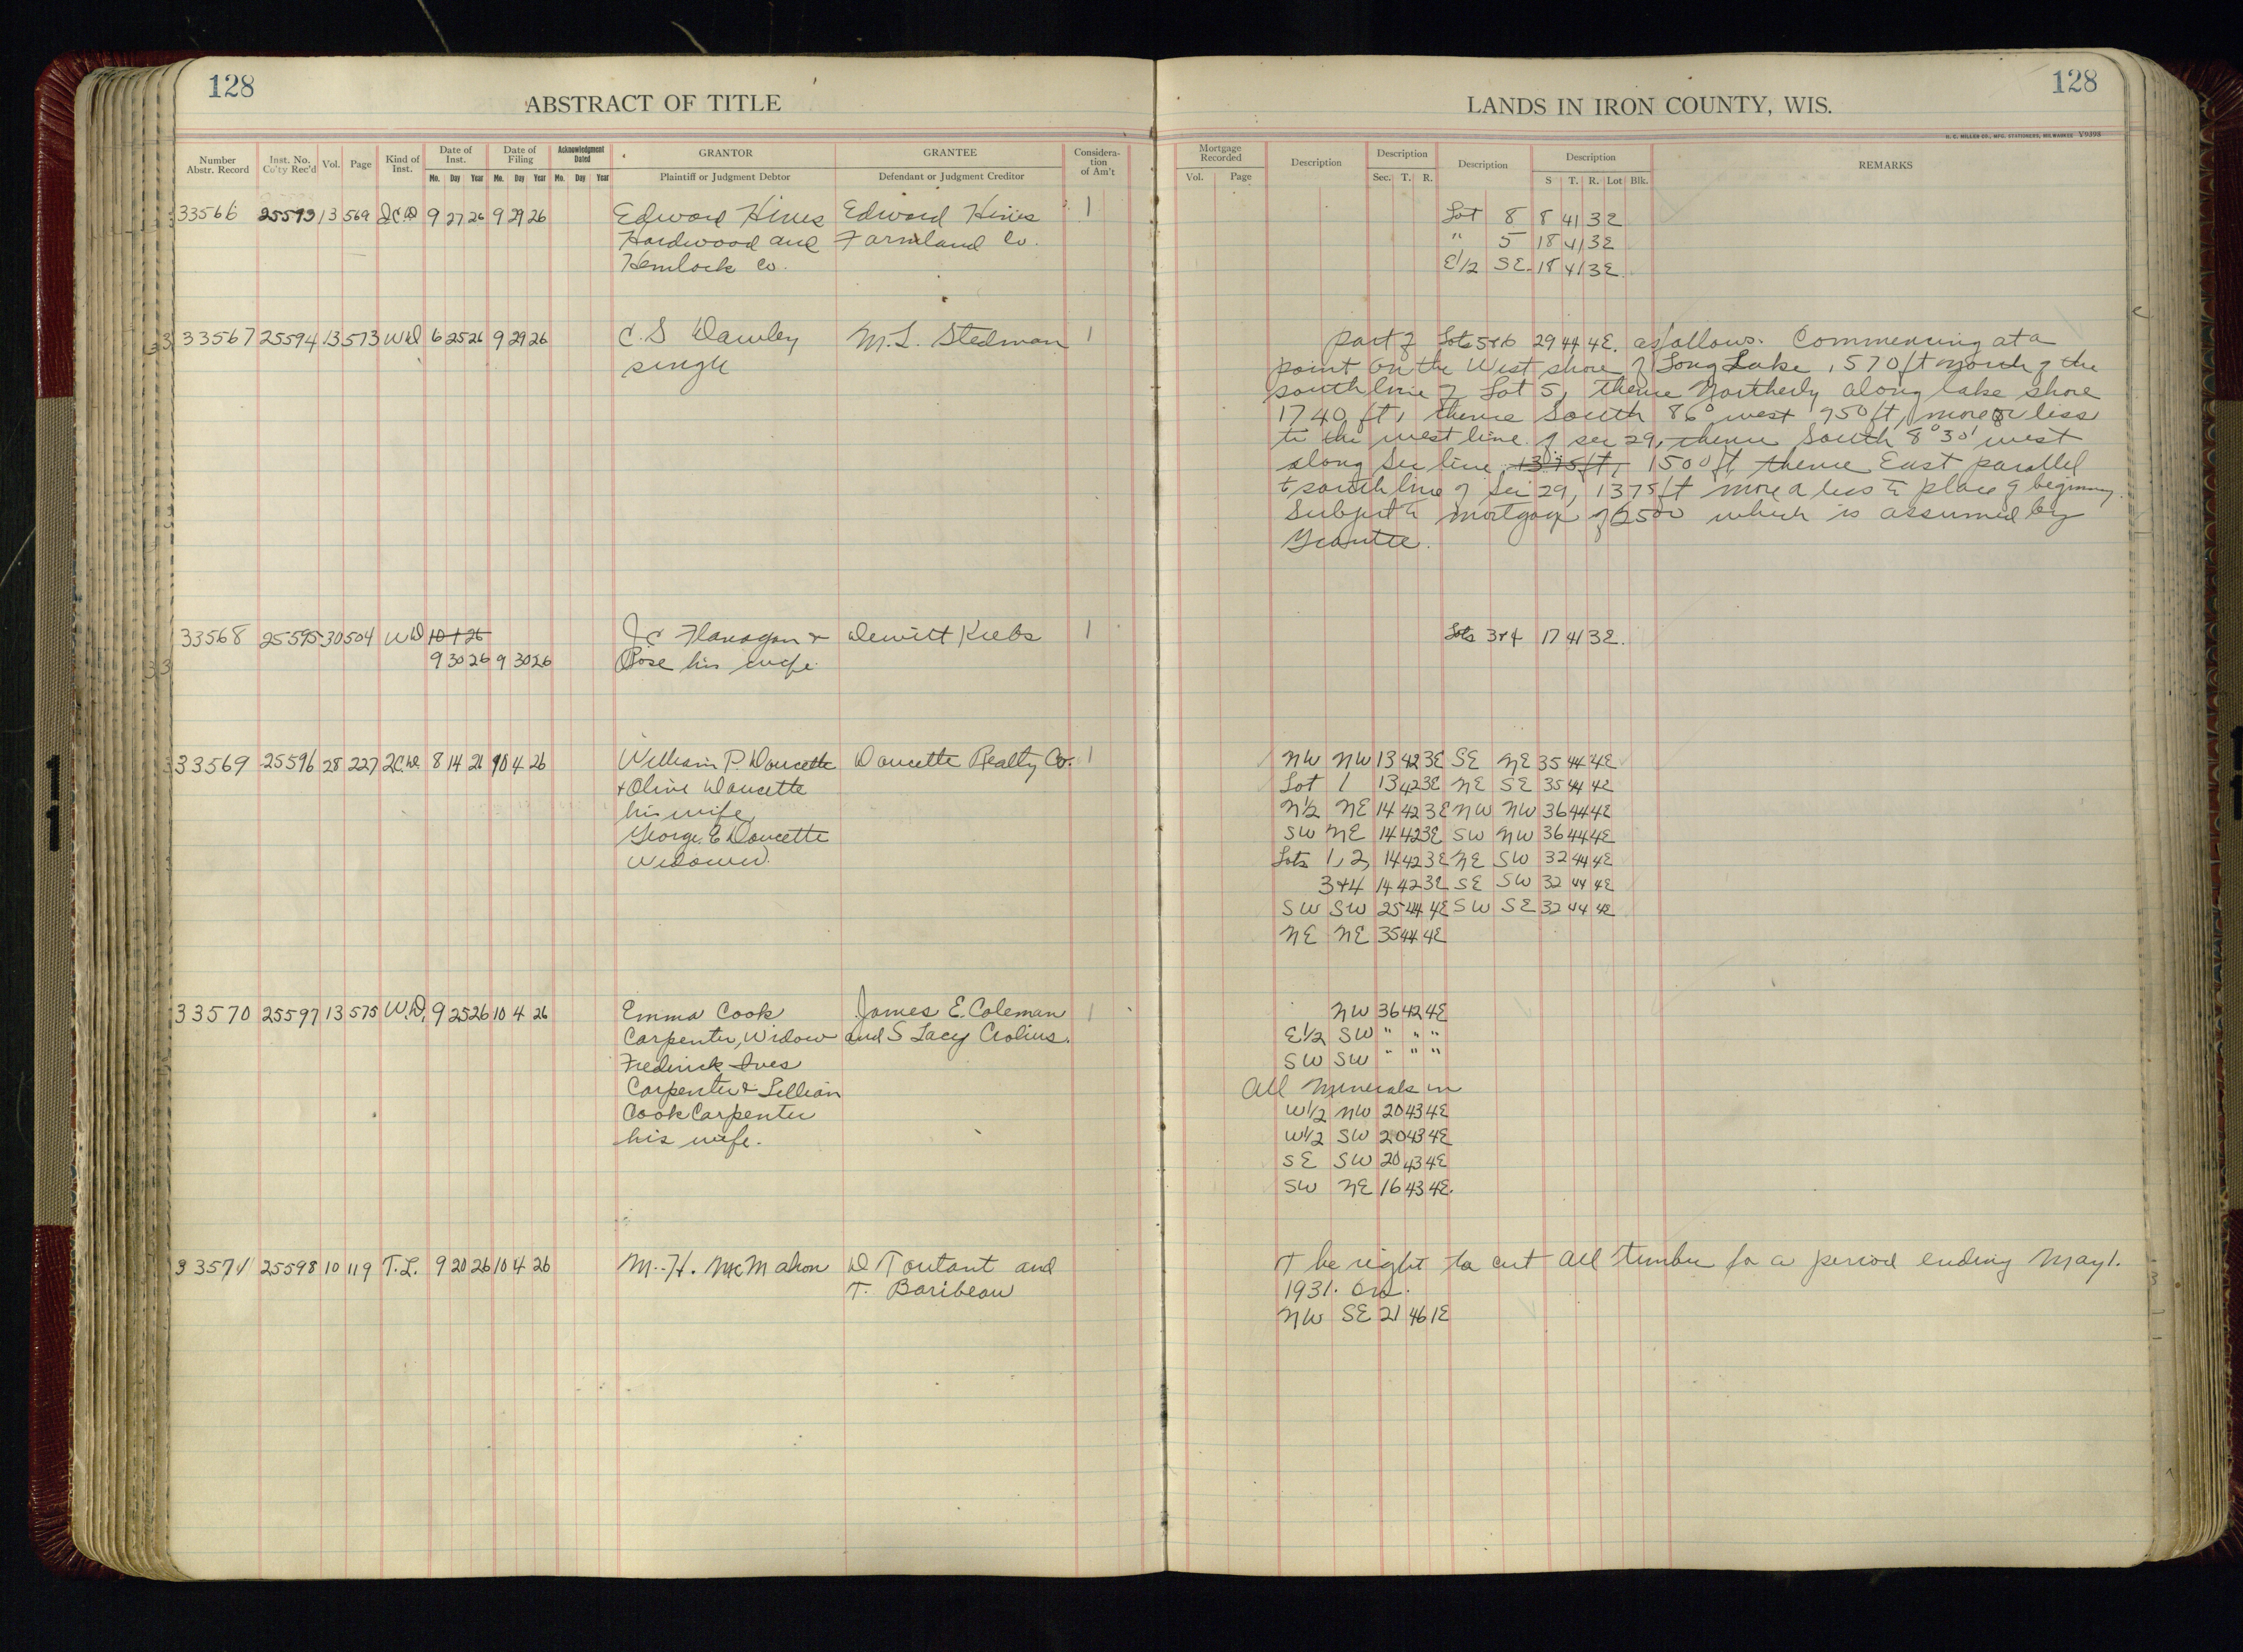 128
ABSTRACT OF TITLE
Number Abstr. Record Inst. No. Co'ty Rec'd Vol. Page Kind of Inst. Date of Inst. Mo. Day Year Date of Filing Mo. Day Year Acknowledgment Dated Mo. Day Year GRANTOR Plaintiff or Judgment Debtor GRANTEE Defendant or Judgment Creditor Consideration of Am't
33566 25593 13 569 9 27 26 9 29 26 Edward Hines Edward Hines 1
Hardwood and Farmland Co.
Hemlock Co.
33567 25594 13 573 WD 6 25 26 9 29 26 C. S Dawley M. L. Stedman 1
single
33568 25595 30 504 WD 10 1 26 J C Flanagan & Dewitt Krebs 1
9 30 26 9 30 26 Rose his wife.
33569 25596 28 227 2C.D. 8 14 26 10 4 26 William P. Doucette Doucette Realty Co. 1
+ Olive Doucette
his wife
George E Doucette
Widower.
33570 25597 13 575 W.D. 9 25 26 10 4 26 Emma Cook James E. Coleman 1
Carpenter, Widow and S Lacy Crolius.
Frederick Ives
Carpenter & Lillian
Cook Carpenter
his wife.
33571 25598 10 119 T.L. 9 20 26 10 4 26 M. H. McMahon D Toutant and
T. Baribeau
128
LANDS IN IRON COUNTY, WIS.
H. C. MILLER CO., MFG. STATIONERS, MILWAUKEE Y9398
Mortgage Recorded Vol. Page Description Description Sec. T. R. Description Description S T. R. Lot Blk. REMARKS
Lot 8 8 41 3E
" 5 18 41 3E
E1/2 SE 18 41 3E
part of Lots 5+6 29 44 4E. as follows. Commencing at a
point on the West shore of Long Lake, 570 ft North of the
south line of Lot 5, thence Northerly along lake shore
1740 ft, thence South 86° west 950 ft, more or less
to the west line of sec 29, thence South 8° 30' west
along Sec line, 1375 ft, 1500 ft thence East parallel
to south line of Sec 29, 1375 ft more or less to place of beginning.
Subject to mortgage of 2500 which is assumed by
Grantee.
Lots 3+4 17 41 3E.
NW NW 13 42 3E SE NE 35 44 4E
Lot 1 13 42 3E NE SE 35 44 4E
N1/2 NE 14 42 3E NW NW 36 44 4E
SW NE 14 42 3E SW NW 36 44 4E
Lots 1, 2, 14 42 3E NE SW 32 44 4E
3+4 14 42 3E SE SW 32 44 4E
SW SW 25 44 4E SW SE 32 44 4E
NE NE 35 44 4E
NW 36 42 4E
E1/2 SW " " "
SW SW " " "
All Minerals in
W1/2 NW 20 43 4E
W1/2 SW 20 43 4E
SE SW 20 43 4E
SW NE 16 43 4E.
The right to cut all timber for a period ending May 1.
1931. on.
NW SE 21 46 1E